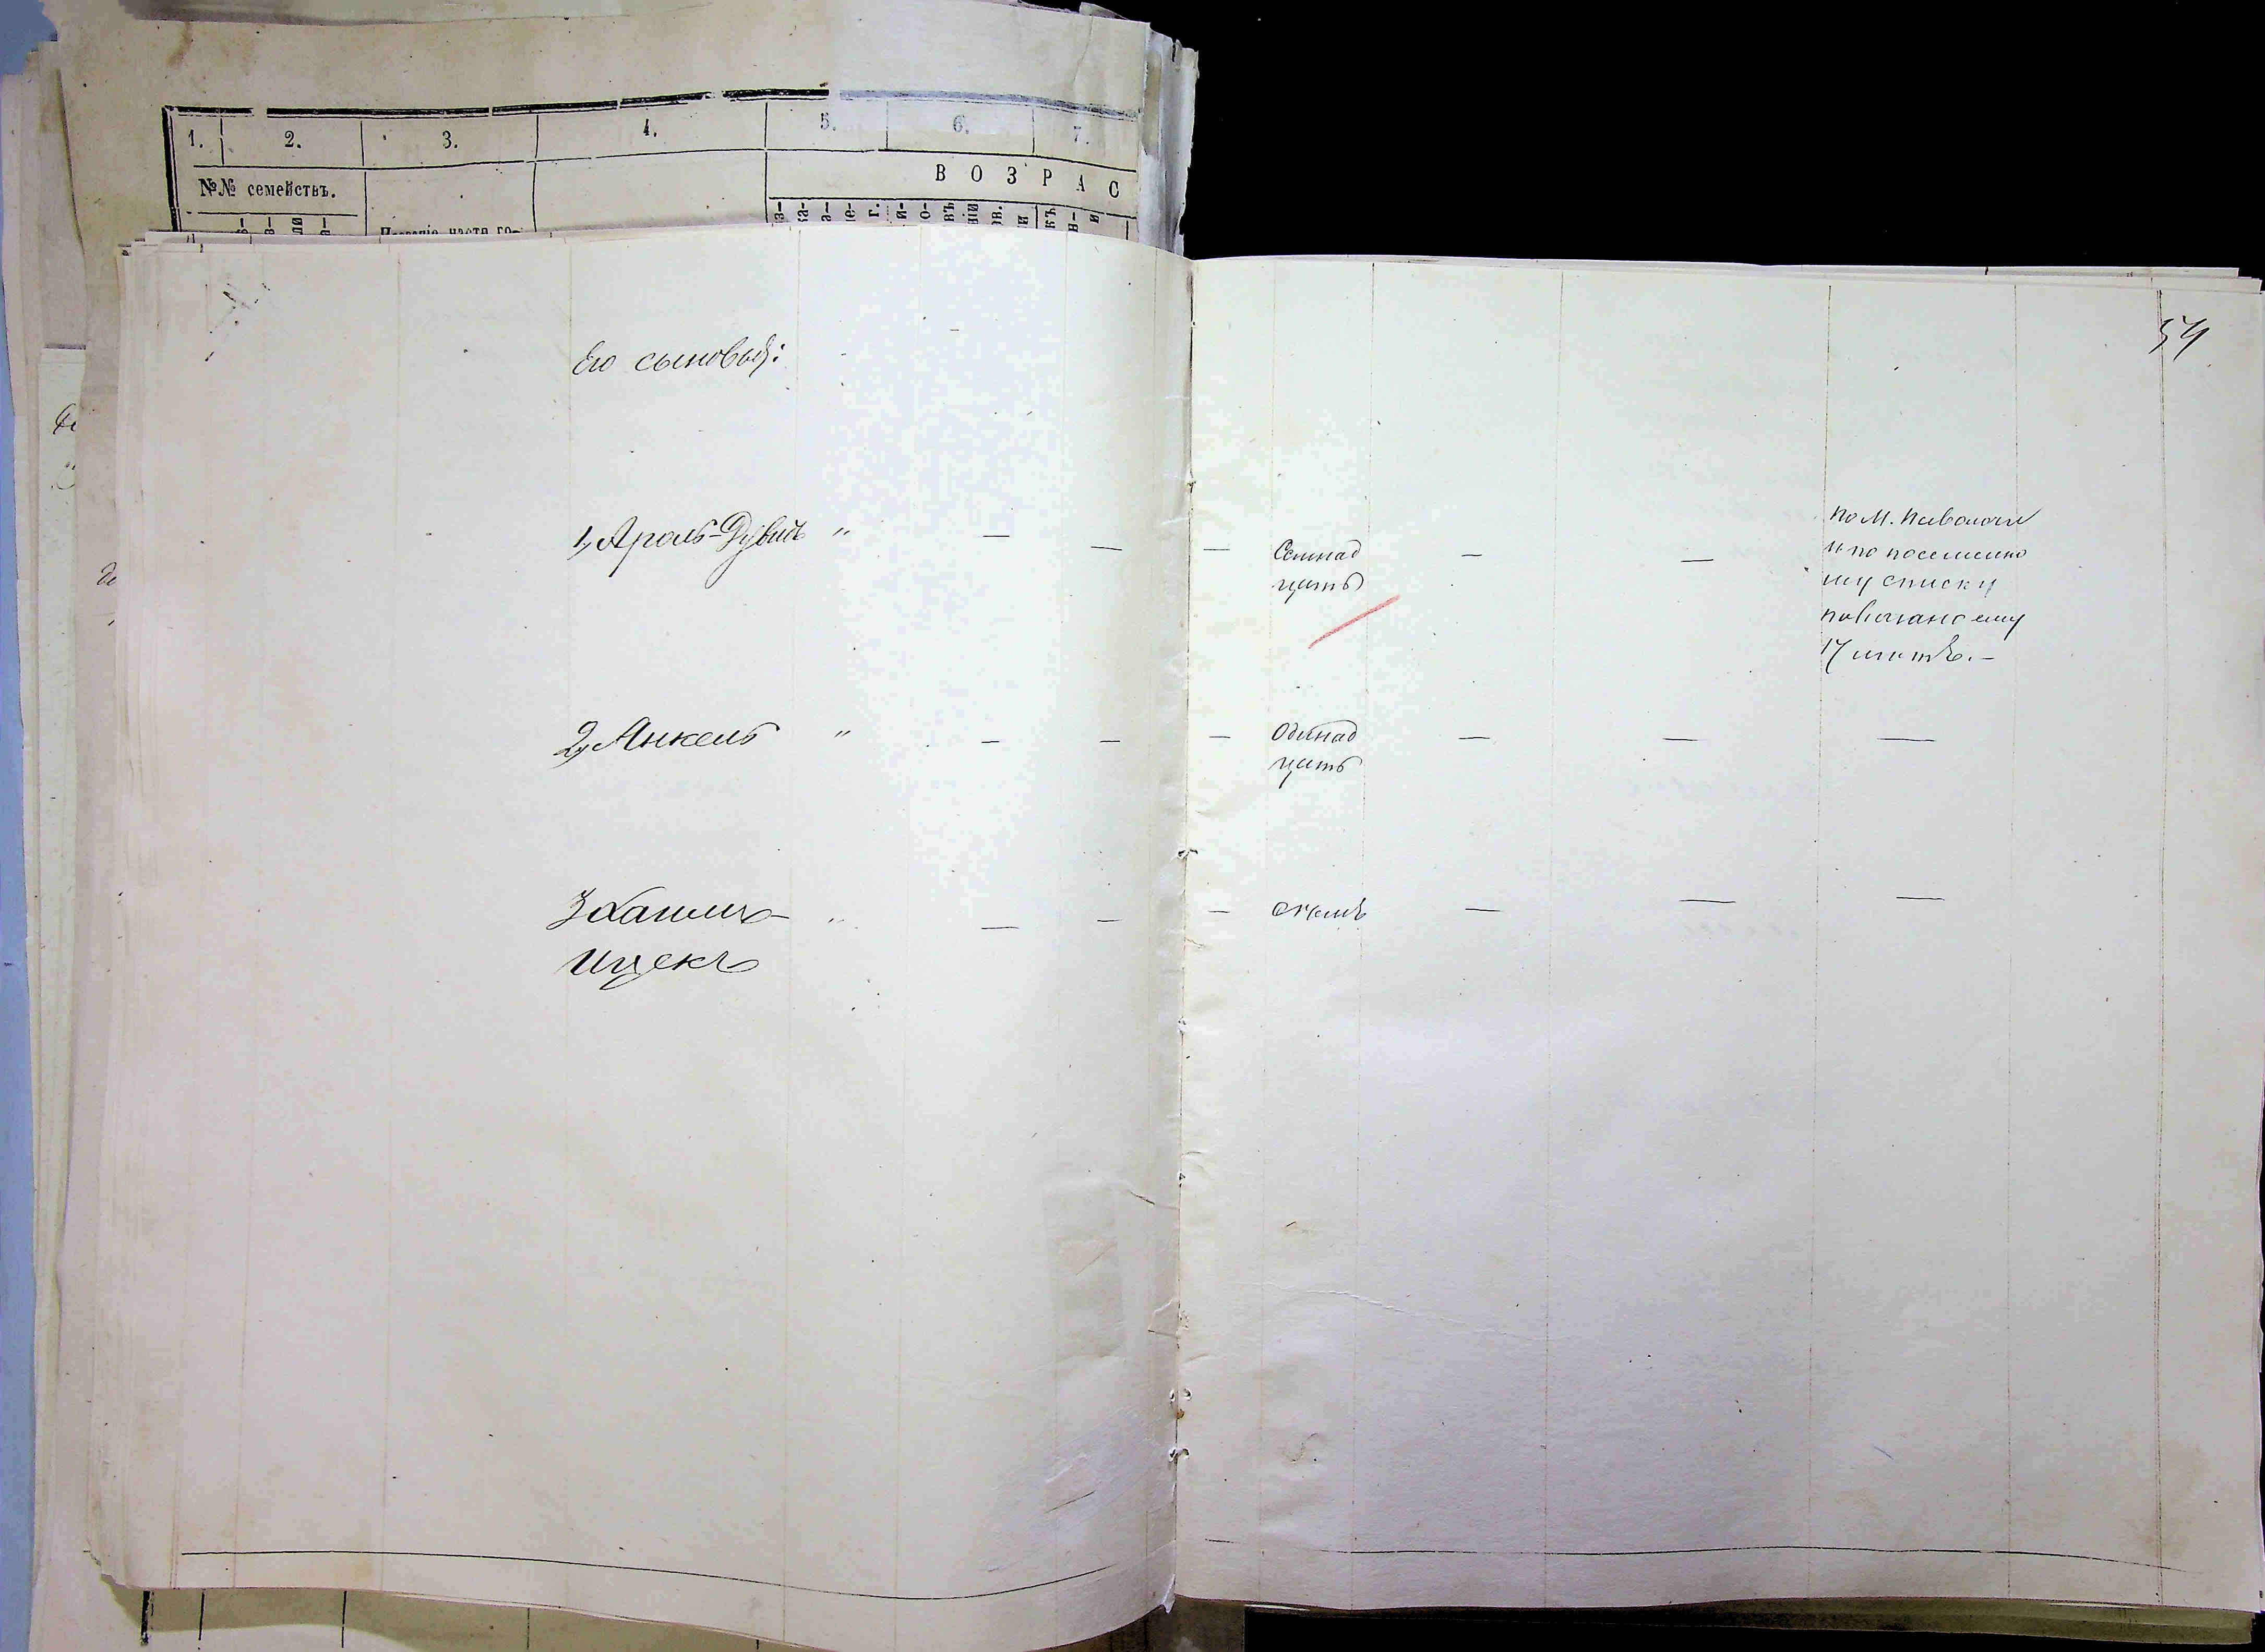 1. 2. 3. 4. 5. 6. 7.
В О З Р А С
№№ семействъ.
54
Его сыновья:
1, Аронъ-Дувидъ " — — — Семнад
цать — — по М. Паволочи
и по посемейно
му списку
показано ему
17 лѣтъ. —
2, Янкель " — — — Одинад
цать — — —
3 Хаимъ- " — — — семь — — —
Ицекъ